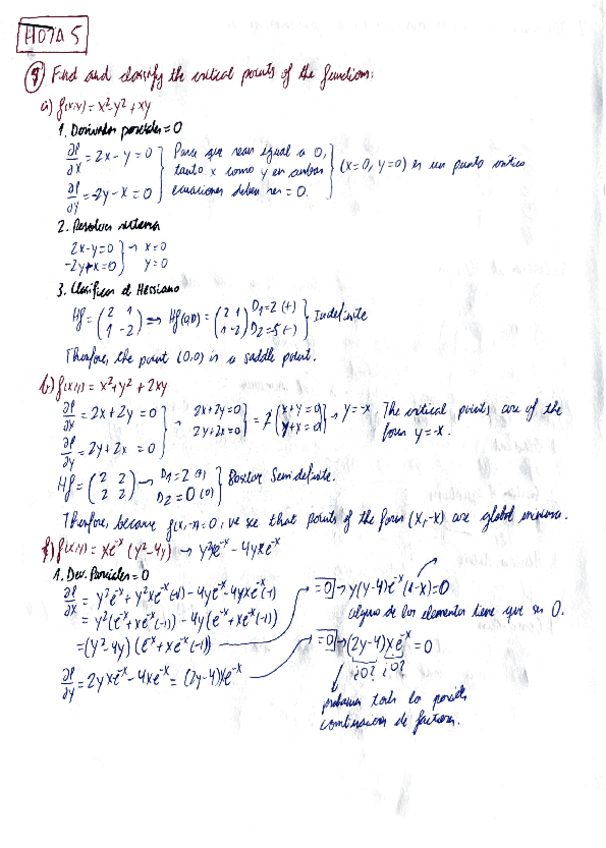 HOJA 5
9 Find and classify the critical points of the functions:
a) f(x,y) = x² - y² + xy
1. Derivadas parciales = 0
∂f/∂x = 2x - y = 0
∂f/∂y = -2y - x = 0
Para que sean igual a 0,
tanto x como y en ambas
ecuaciones deben ser = 0.
(x=0, y=0) es un punto crítico
2. Resolver sistema
2x - y = 0 → x = 0
-2y + x = 0 y = 0
3. Clasificar el Hessiano
Hf = (2 1; 1 -2) ⇒ Hf(0,0) = (2 1; 1 -2) D₁ = 2 (+) D₂ = -5 (-) } Indefinite
Therefore, the point (0,0) is a saddle point.
b) f(x,y) = x² + y² + 2xy
∂f/∂x = 2x + 2y = 0
∂f/∂y = 2y + 2x = 0
2x + 2y = 0
2y + 2x = 0
= 2 { x + y = 0
y + x = 0 } → y = -x
The critical points are of the
form y = -x.
Hf = (2 2; 2 2) → D₁ = 2 D₂ = 0 (0) } Semidefinite.
Therefore, because f(x,-x) = 0, we see that points of the form (x,-x) are global
f) f(x,y) = xe⁻ˣ (y² - 4y) → y²xe⁻ˣ - 4yxe⁻ˣ
1. Der. Parciales = 0
∂f/∂x = y²e⁻ˣ + y²xe⁻ˣ(-1) - 4ye⁻ˣ - 4yxe⁻ˣ(-1)
= y²(e⁻ˣ + xe⁻ˣ(-1)) - 4y(e⁻ˣ + xe⁻ˣ(-1))
= (y² - 4y)(e⁻ˣ + xe⁻ˣ(-1))
= 0 → y(y-4)e⁻ˣ(1-x) = 0
alguno de los elementos tiene que ser 0.
∂f/∂y = 2yxe⁻ˣ - 4xe⁻ˣ = (2y-4)xe⁻ˣ
= 0 → (2y-4)xe⁻ˣ = 0
¿0? ¿0?
de factores.